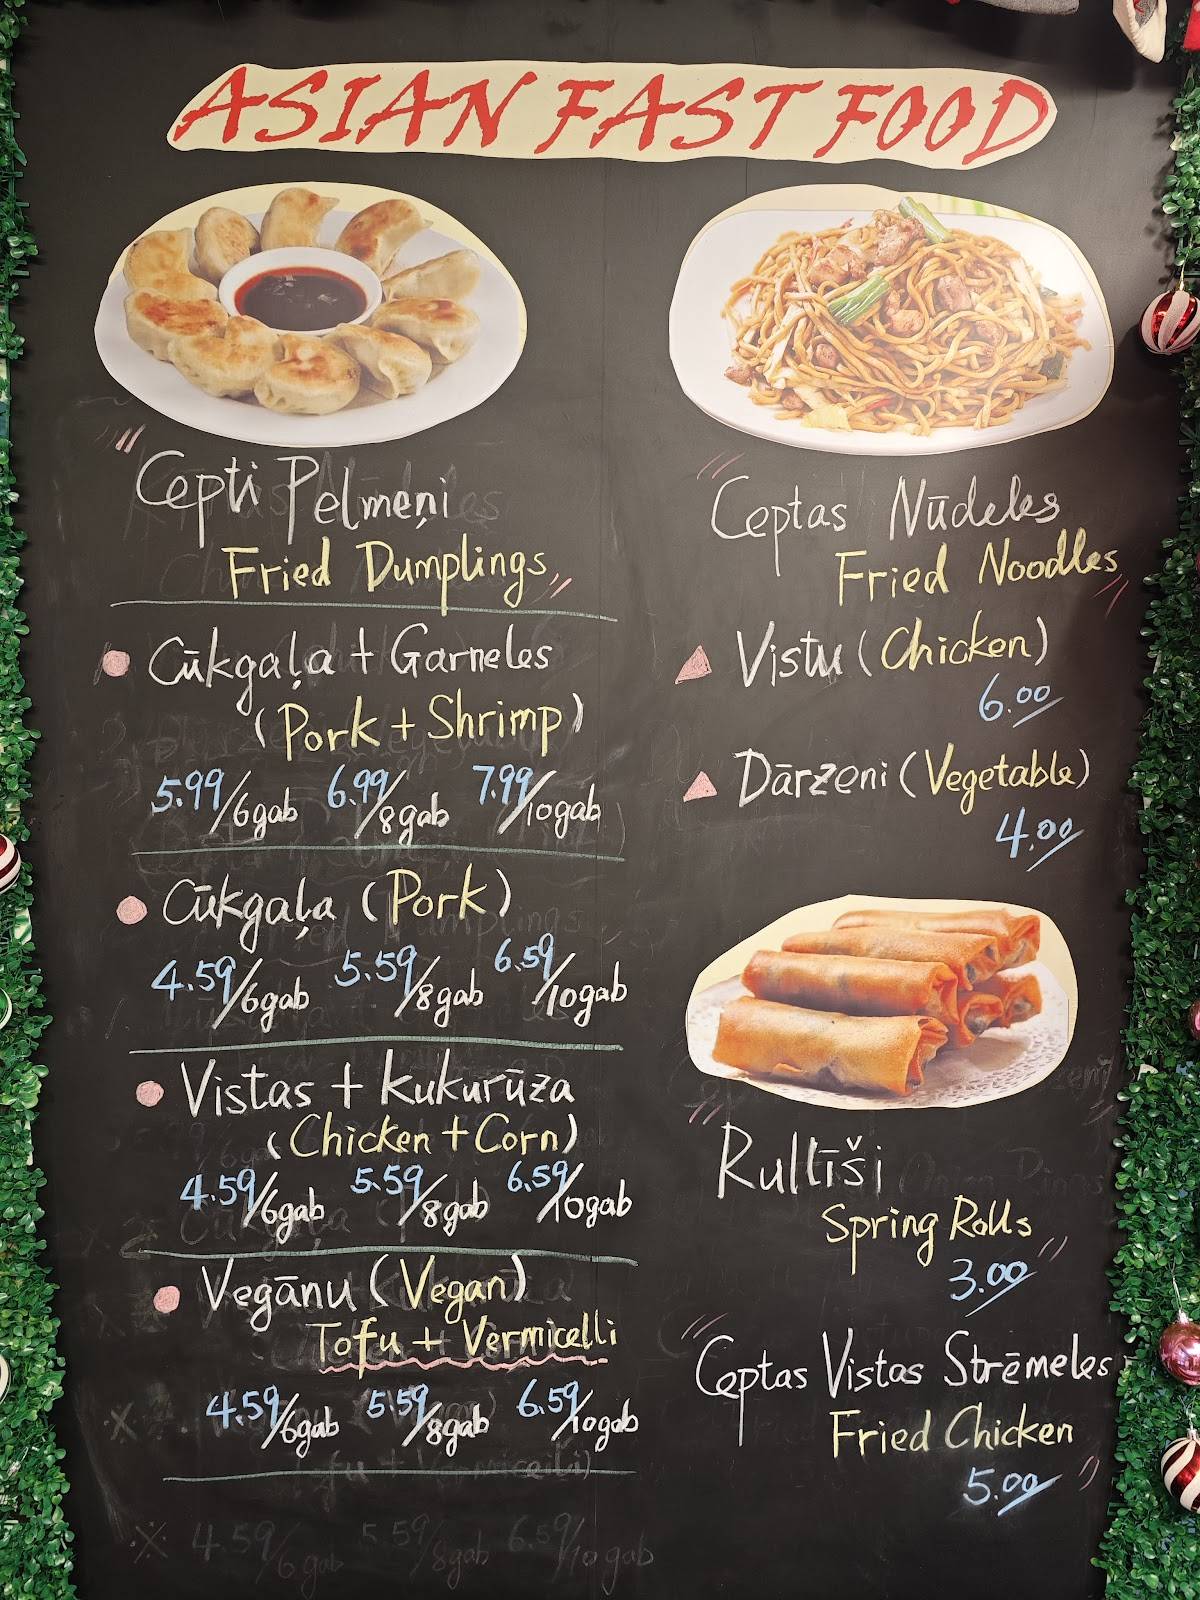 ASIAN FAST FOOD
"Cepti Pelmeņi
Fried Dumplings"
Cūkgaļa + Garneles
(Pork + Shrimp)
5.99/6gab 6.99/8gab 7.99/10gab
Cūkgaļa (Pork)
4.59/6gab 5.59/8gab 6.59/10gab
Vistas + Kukurūza
(Chicken + Corn)
4.59/6gab 5.59/8gab 6.59/10gab
Vegānu (Vegan)
Tofu + Vermicelli
4.59/6gab 5.59/8gab 6.59/10gab
4.59/6gab 5.59/8gab 6.59/10gab
"Ceptas Nūdeles
Fried Noodles"
Vistu (Chicken)
6.00
Dārzeni (Vegetable)
4.00
"Rullīši
Spring Rolls"
3.00
"Ceptas Vistas Strēmeles
Fried Chicken"
5.00